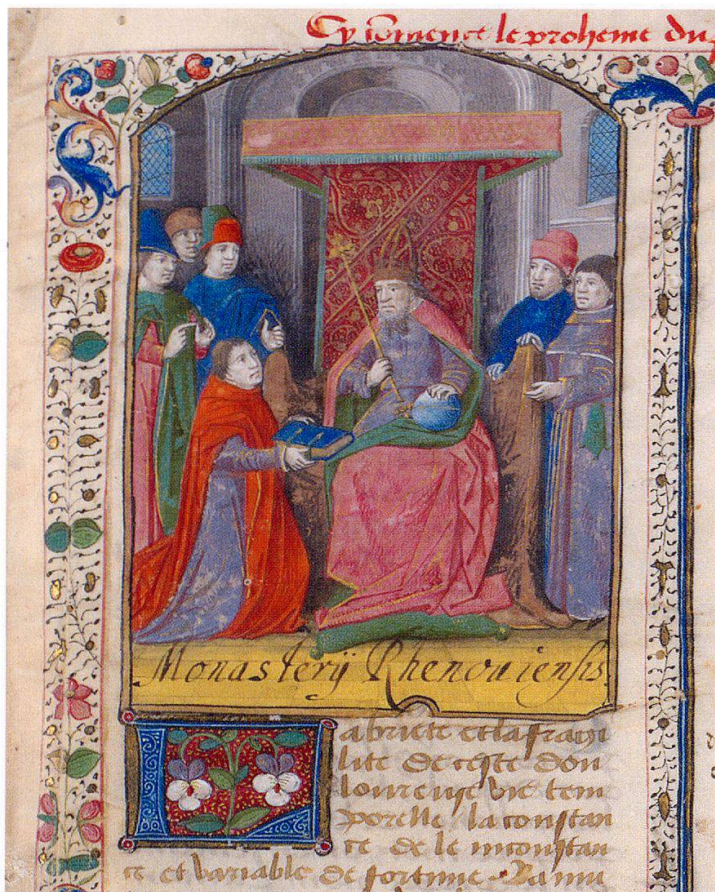 Cy cōmence le proheme du
Monasterÿ Rhenouiensis
Labriete et la fragi
lite de ceste dou
loureuse vie tem
porelle la constan
ce de le inconstan
ce et variable de fortune La mu